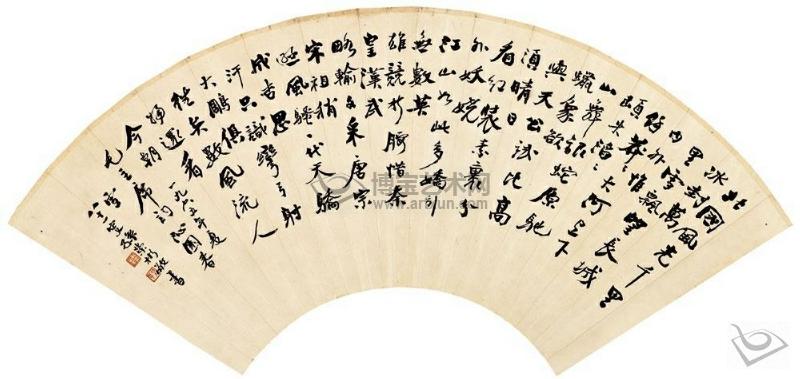 北國風光千里
冰封萬
里雪飄望長城
内外惟
餘莽莽大河上下
頓失滔
滔山舞銀蛇原馳
蠟象欲
與天公試比高
須晴日
看紅裝素裹分
外妖嬈
江山如此多嬌引
無數英
雄競折腰惜秦
皇漢武
略輸文采唐宗
宋祖稍
遜風騷一代天驕
成吉思
汗只識彎弓射
大鵰俱
往矣數風流人
物還看
今朝
毛主席詞沁園春
一九六五年夏
書
博宝艺术网
www.artxun.com